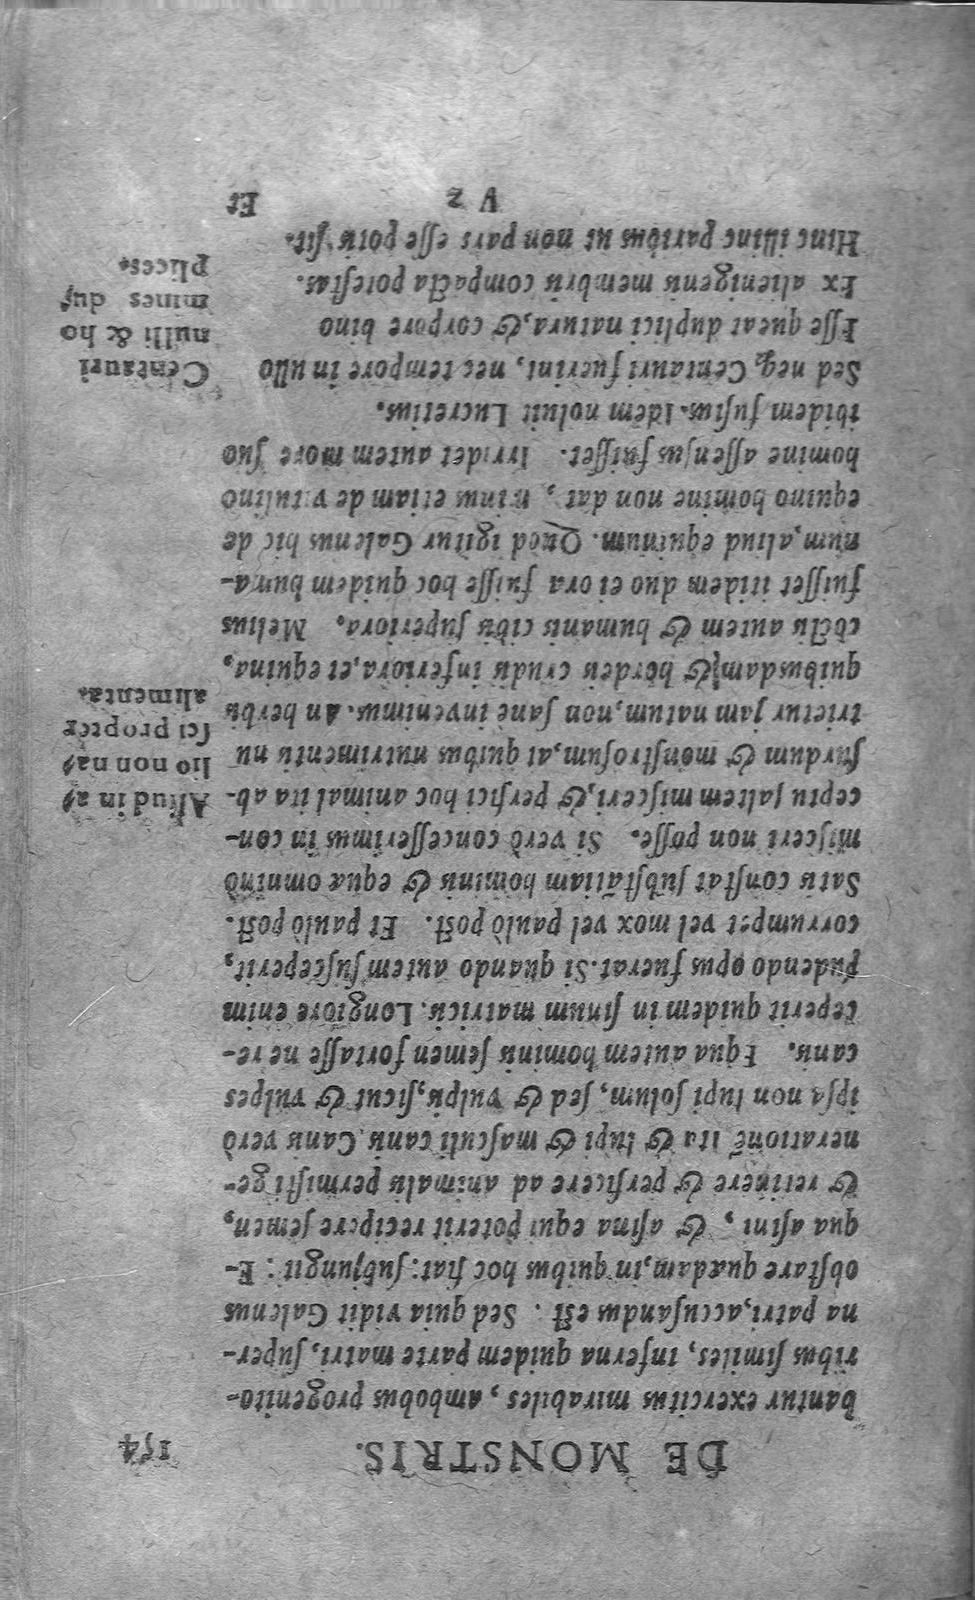 DE MONSTRIS. 154
bantur exercitus mirabiles, ambobus progenito-
ribus ſimiles, inferna quidem parte matri, ſuper-
na patri, accuſandus eſt. Sed quia vidit Galenus
obſtare quædam, in quibus hoc fiat: ſubjungit: E-
qua aſini, & aſina equi poterit recipere ſemen,
& retinere & perficere ad animalis permiſti ge-
nerationē ita & lupi & maſculi canis. Canis verò
ipſa non lupi ſolum, ſed & vulpis, ſicut & vulpes
canis. Equa autem hominis ſemen fortaſſe ne re-
ceperit quidem in ſinum matricis. Longiore enim
pudendo opus fuerat. Si quando autem ſuſceperit,
corrumpet vel mox vel paulò pòſt. Et paulò pòſt.
Satis conſtat ſubſtātiam hominis & equæ omninò
miſceri non poſſe. Si verò conceſſerimus in con-
ceptu ſaltem miſceri, & perfici hoc animal ita ab-
ſurdum & monſtroſum, at quibus nutrimentis nu
trietur jam natum, non ſane invenimus. An herbis
quibusdam, & hordeis crudis inferiora, et equina,
coctis autem & humanis cibis ſuperiora. Melius
fuiſſet itidem duo ei ora fuiſſe hoc quidem huma-
num, aliud equinum. Quod igitur Galenus hic de
equino homine non dat, minus etiam de vitulino
homine aſſenſus fuiſſet. Irridet autem more ſuo
ibidem fuſius. Idem noluit Lucretius.
Sed neq; Centauri fuerint, nec tempore in ullo
Eſſe queat duplici natura, & corpore bino
Ex alienigenis membris compacta poteſtas.
Hinc illinc paribus ut non pars eſſe potis ſit.
V 2 Et
Aliud in a⸗
lio non na⸗
ſci propter
alimenta.
Centauri
nulli & ho
mines du⸗
plices.